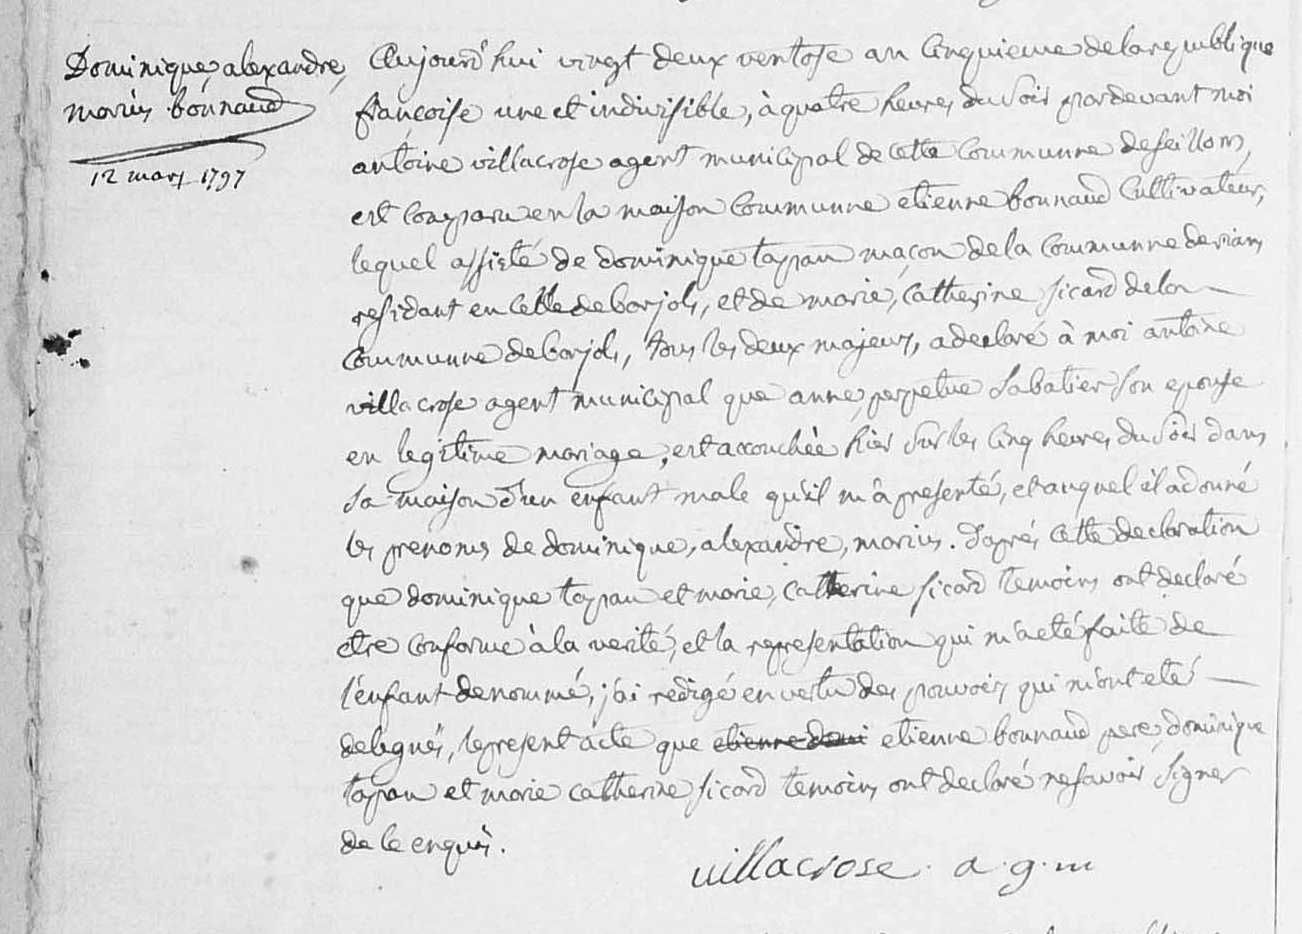 Dominique, alexandre,
marius bonnaud
12 mars 1797
Aujourd'hui vingt deux ventose an Cinquieme de la republique
francoise une et indivisible, à quatre heures du soir pardevant moi
antoine villacrose agent municipal de cette Communne de seillons,
est comparu en la maison Communne etienne bonnaud Cultivateur,
lequel assisté de dominique tapau maçon de la Communne de rians
residant en Celle de barjols, et de marie, Catherine sicard de la
Communne de barjols, tous les deux majeurs, a declaré à moi antoine
villacrose agent municipal que anne, perpetue Sabatier son epouse
en legitime mariage, est accouchée hier sur les Cinq heures du soir dans
sa maison d'un enfant male qu'il m'a presenté, et auquel il a donné
les prenoms de dominique, alexandre, marius. D'après Cette declaration
que dominique tapau et marie, Catherine sicard temoins ont declaré
etre conforme à la verité, et la representation qui m'a eté faite de
l'enfant denommé, j'ai redigé en vertu des pouvoirs qui m'ont eté
delegués, le present acte que etienne domi etienne bonnaud pere, dominique
tapau et marie Catherine sicard temoins ont declaré ne savoir signer
de ce enquis.
villacrose. a. g. m